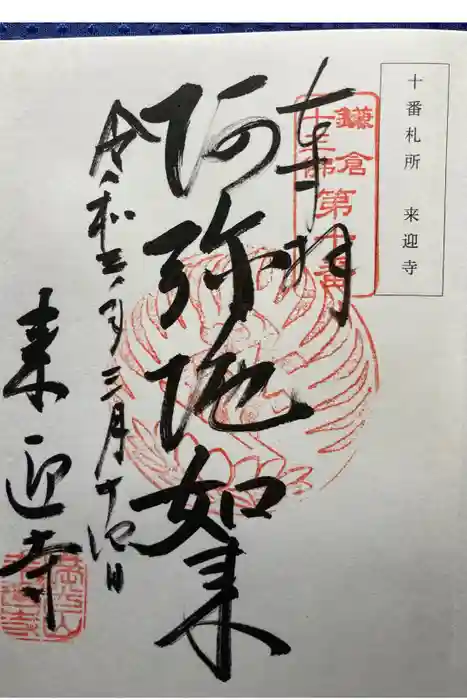 十番札所　来迎寺
鎌倉
十三佛
第十番
奉拝
阿弥陀如来
令和三年三月十四日
来迎寺